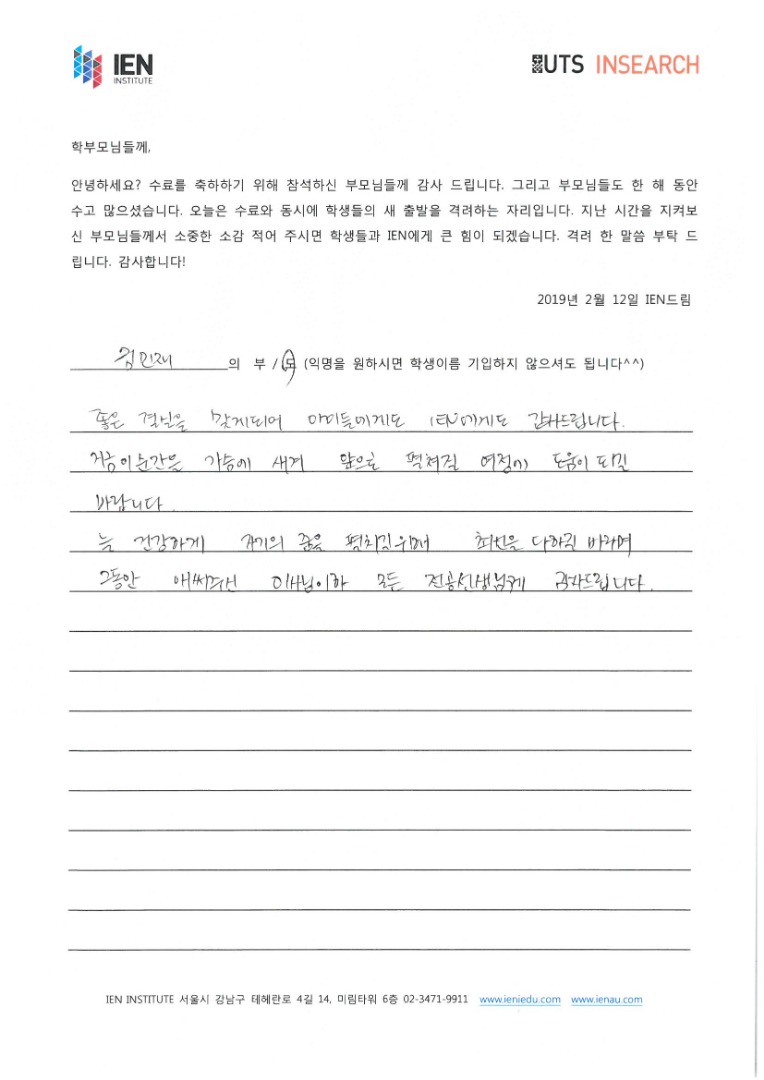 IEN
INSTITUTE
UTS INSEARCH
학부모님들께,
안녕하세요? 수료를 축하하기 위해 참석하신 부모님들께 감사 드립니다. 그리고 부모님들도 한 해 동안
수고 많으셨습니다. 오늘은 수료와 동시에 학생들의 새 출발을 격려하는 자리입니다. 지난 시간을 지켜보
신 부모님들께서 소중한 소감 적어 주시면 학생들과 IEN에게 큰 힘이 되겠습니다. 격려 한 말씀 부탁 드
립니다. 감사합니다!
2019년 2월 12일 IEN드림
김민재 의 부 / 모 (익명을 원하시면 학생이름 기입하지 않으셔도 됩니다^^)
좋은 결실을 맞게되어 아이들에게도 IEN에게도 감사드립니다.
지금 이순간은 가슴에 새겨 앞으로 펼쳐질 여정에 도움이 되길
바랍니다.
늘 건강하게 자기의 꿈을 펼치길위해 최선을 다하길 바라며
그동안 애써주신 이사님이하 모든 전공선생님께 감사드립니다.
IEN INSTITUTE 서울시 강남구 테헤란로 4길 14, 미림타워 6층 02-3471-9911 www.ieniedu.com www.ienau.com